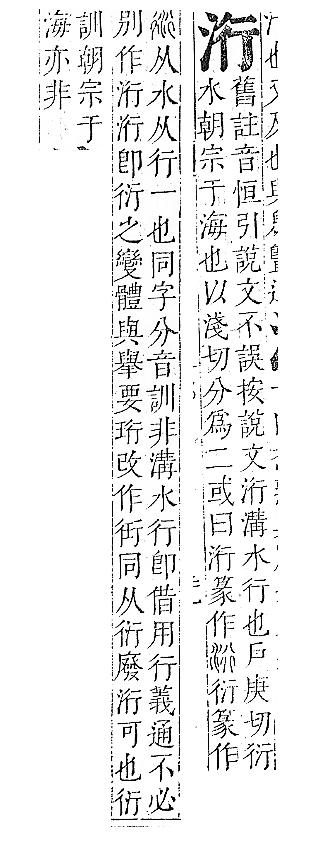 洐
舊註音恒引說文不誤按說文洐溝水行也戶庚切衍
水朝宗于海也以淺切分爲二或曰洐篆作衍篆作
从水从行一也同字分音訓非溝水行卽借用行義通不必
別作洐洐卽衍之變體與舉要珩改作同从衍廢洐可也衍
訓朝宗于
海亦非